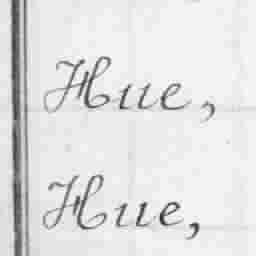 Hue,
Hue,